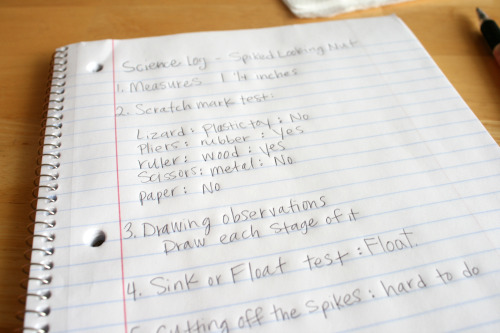 Science Log - Spiked Looking Nut
1. Measures 1 1/4 inches
2. Scratch mark test:
Lizard: plastic toy: No
Pliers: rubber: yes
ruler: wood: yes
Scissors: metal: No
paper: No
3. Drawing observations
Draw each stage of it
4. Sink or Float test: Float.
5. Cutting off the spikes: hard to do